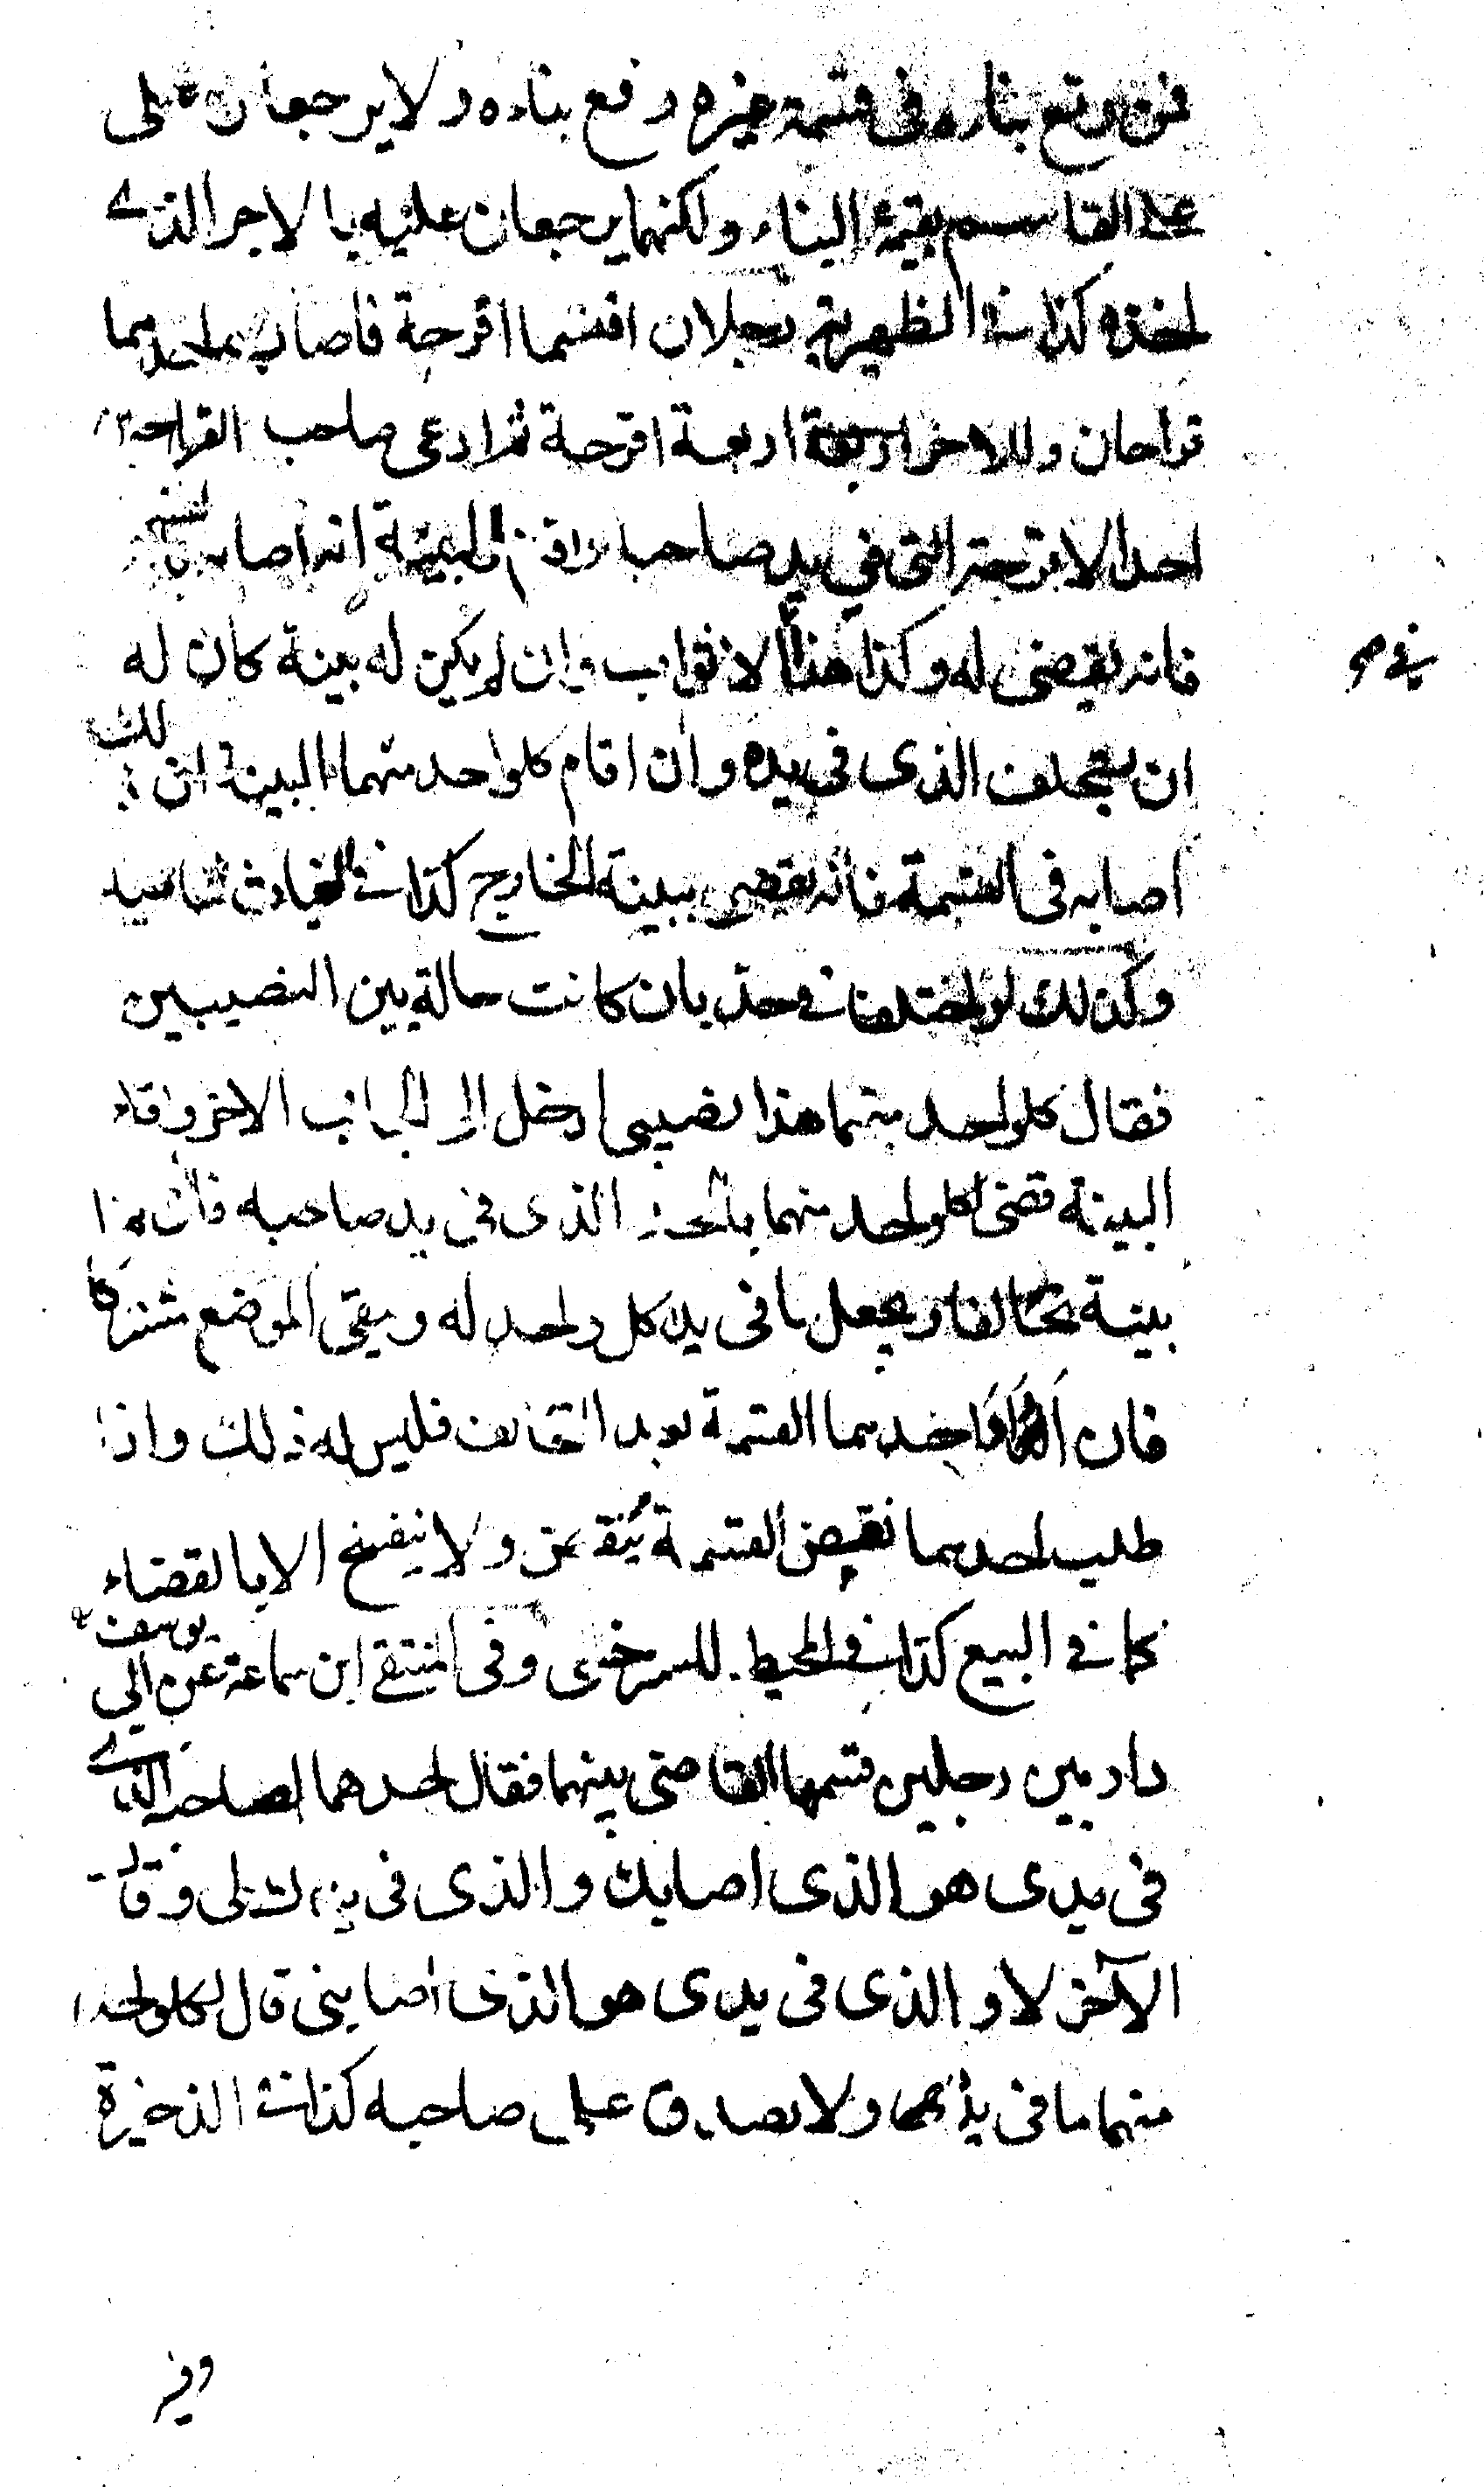 فمن وقع بناؤه فى قسمة غيره رفع بناءه ولا يرجعان على
على القاسم بقيمة البناء ولكنهما يرجعان عليه بالاجر الذى
اخذه كذا فى الظهيرية رجلان اقتسما اقرحة فاصاب احدهما
قراحان وللاخر اربعة اقرحة ثم ادعى صاحب القراحين
احد الاقرحة التى فى يد صاحبه واقام البينة انه اصابه فى قسمته
فانه يقضى له وكذا هذا الاثواب وان لم يكن له بينة كان له
فى
ان يستحلف الذى فى يده وان اقام كلواحد منهما البينة ان ذلك
اصابه فى القسمة فانه يقضى ببينة الخارج كذا فى الغياثية
وكذلك لو اختلفا فى حد بان كانت حالة بين النصيبين
فقال كلواحد منهما هذا نصيبى ادخل الى الجانب الاخر واقاما
البينة قضى لكلواحد منهما بالحد الذى فى يد صاحبه فان
بينة تحالفا ويجعل ما فى يد كل واحد له ويبقى الموضع مشتركا
فان اراد احدهما القسمة بعد التحالف فليس له ذلك واذا
طلب احدهما نقض القسمة ينقض ولا ينفسخ الا بالقضاء
كما فى البيع كذا فى المحيط للسرخسى وفى المنتقى ابن سماعة عن ابى يوسف
دار بين رجلين قسمها القاضى بينهما فقال احدهما لصاحبه الذى
فى يدى هو الذى اصابك والذى فى يدك لى وقال
الآخر لا والذى فى يدى هو الذى اصابنى قال لكلواحد
منهما ما فى يده ولا يصدق على صاحبه كذا فى الذخيرة
وفى